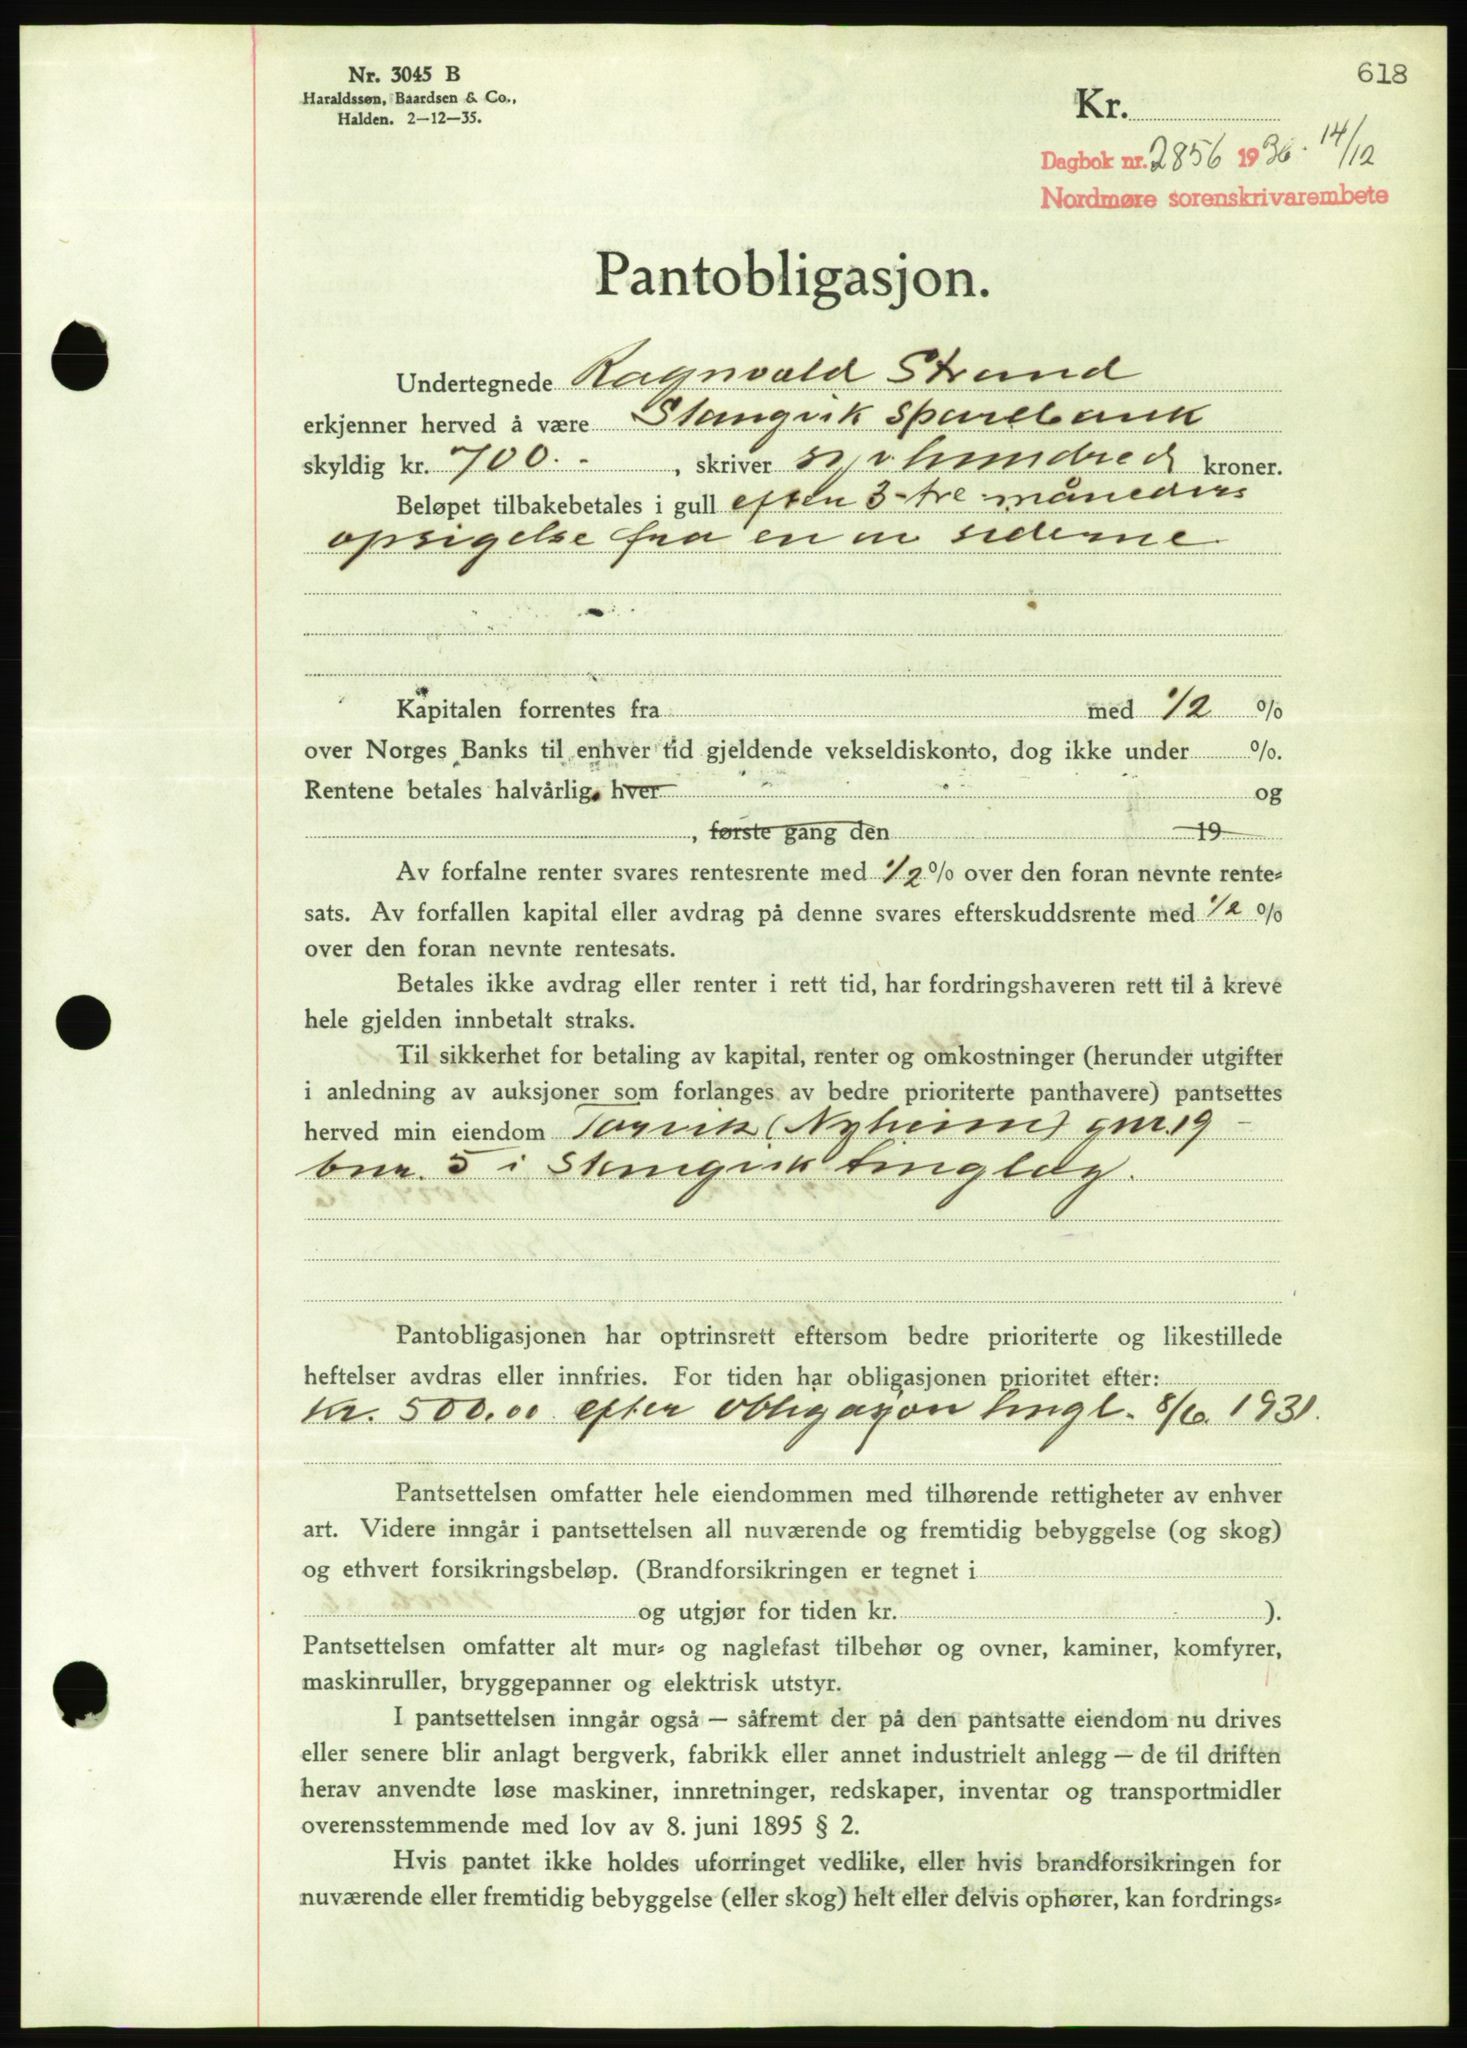 618
Nr. 3045 B
Haraldssøn, Baardsen & Co.,
Halden. 2—12—35.
Kr.
Dagbok nr. 2856 1936. 14/12
Nordmøre sorenskrivarembete
Pantobligasjon.
Undertegnede Ragnvald Strand
erkjenner herved å være Stangvik sparebank
skyldig kr. 700.-, skriver syvhundred kroner.
Beløpet tilbakebetales i gull efter 3-tre måneders
opsigelse fra en av siderne
Kapitalen forrentes fra med 1/2 %
over Norges Banks til enhver tid gjeldende vekseldiskonto, dog ikke under %.
Rentene betales halvårlig. hver og
, første gang den 19
Av forfalne renter svares rentesrente med 1/2 % over den foran nevnte rente-
sats. Av forfallen kapital eller avdrag på denne svares efterskuddsrente med 1/2 %
over den foran nevnte rentesats.
Betales ikke avdrag eller renter i rett tid, har fordringshaveren rett til å kreve
hele gjelden innbetalt straks.
Til sikkerhet for betaling av kapital, renter og omkostninger (herunder utgifter
i anledning av auksjoner som forlanges av bedre prioriterte panthavere) pantsettes
herved min eiendom Torvik (Nyheim) gnr. 19 -
bnr. 5 i Stangvik tinglag.
Pantobligasjonen har optrinsrett eftersom bedre prioriterte og likestillede
heftelser avdras eller innfries. For tiden har obligasjonen prioritet efter:
Kr. 500.00 efter obligasjon tingl. 8/6. 1931.
Pantsettelsen omfatter hele eiendommen med tilhørende rettigheter av enhver
art. Videre inngår i pantsettelsen all nuværende og fremtidig bebyggelse (og skog)
og ethvert forsikringsbeløp. (Brandforsikringen er tegnet i
og utgjør for tiden kr. ).
Pantsettelsen omfatter alt mur- og naglefast tilbehør og ovner, kaminer, komfyrer,
maskinruller, bryggepanner og elektrisk utstyr.
I pantsettelsen inngår også — såfremt der på den pantsatte eiendom nu drives
eller senere blir anlagt bergverk, fabrikk eller annet industrielt anlegg — de til driften
herav anvendte løse maskiner, innretninger, redskaper, inventar og transportmidler
overensstemmende med lov av 8. juni 1895 § 2.
Hvis pantet ikke holdes uforringet vedlike, eller hvis brandforsikringen for
nuværende eller fremtidig bebyggelse (eller skog) helt eller delvis ophører, kan fordrings-